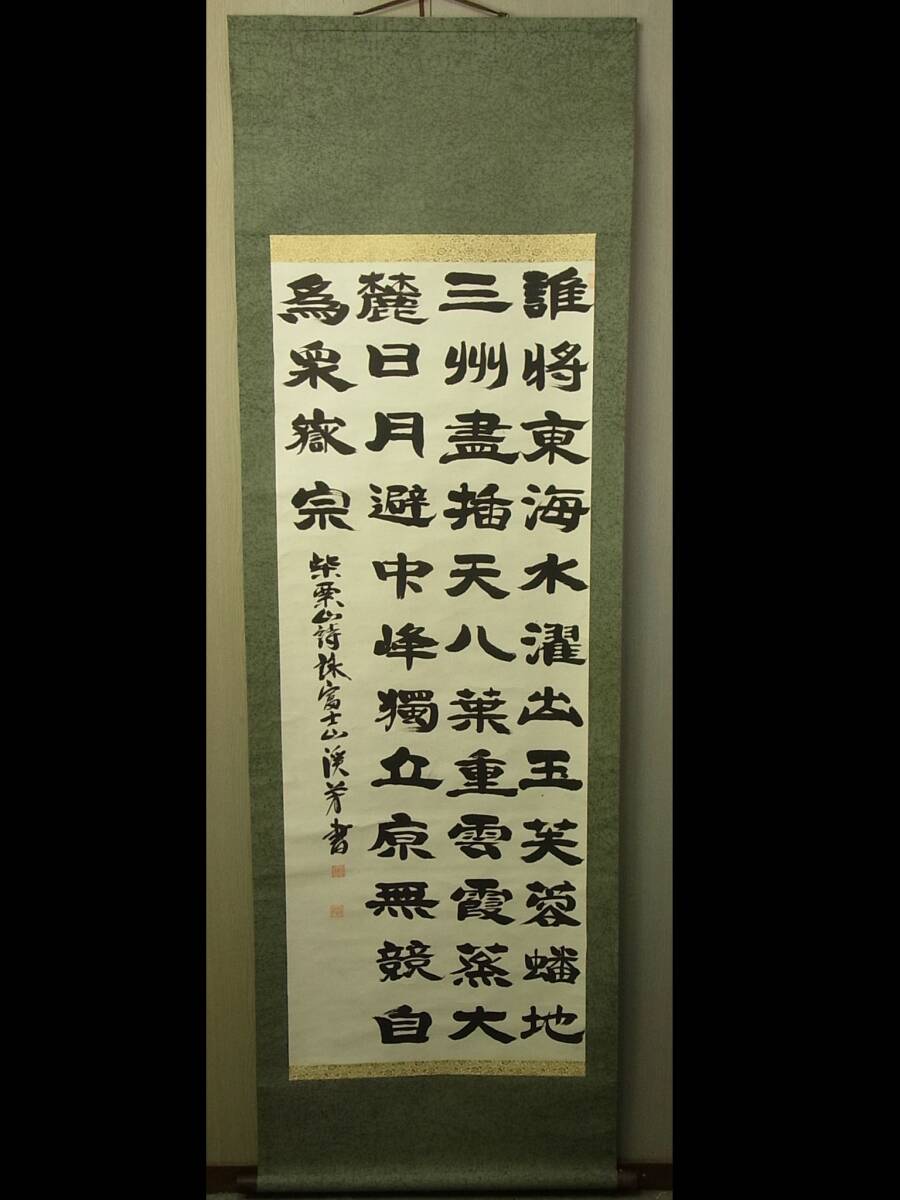 誰將東海水濯出玉芙蓉蟠地
三州盡插天八葉重雲霞蒸大
麓日月避中峰獨立原無競自
為眾嶽宗
柴栗山詩詠富士山 溪芳書